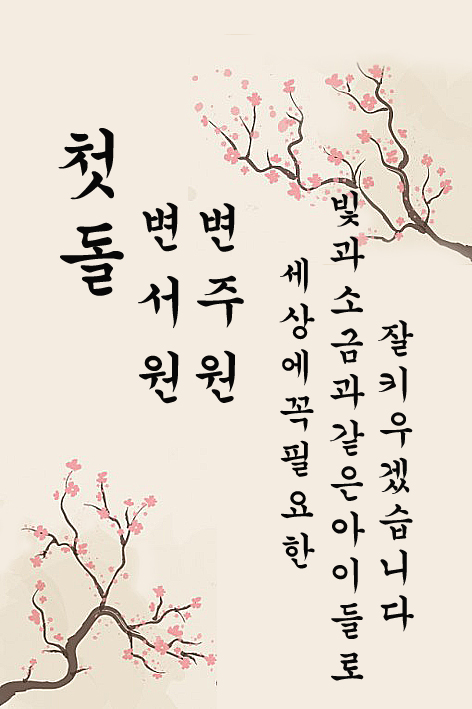 첫돌
변서원
변주원
세상에꼭필요한
빛과소금과같은아이들로
잘키우겠습니다